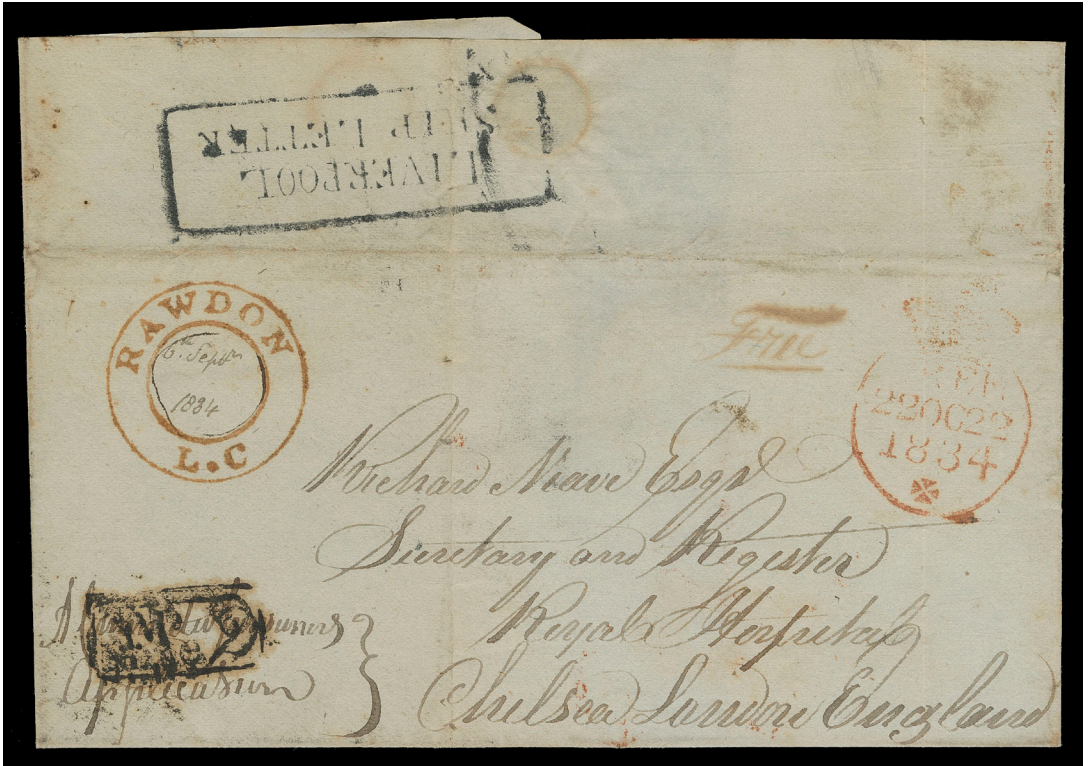 LIVERPOOL
SHIP LETTER
RAWDON
6th Septr
1834
L.C
Free
22OC22
1834
Richard Neave Esqr
Secretary and Register
Royal Hospital
Chelsea London England
Application